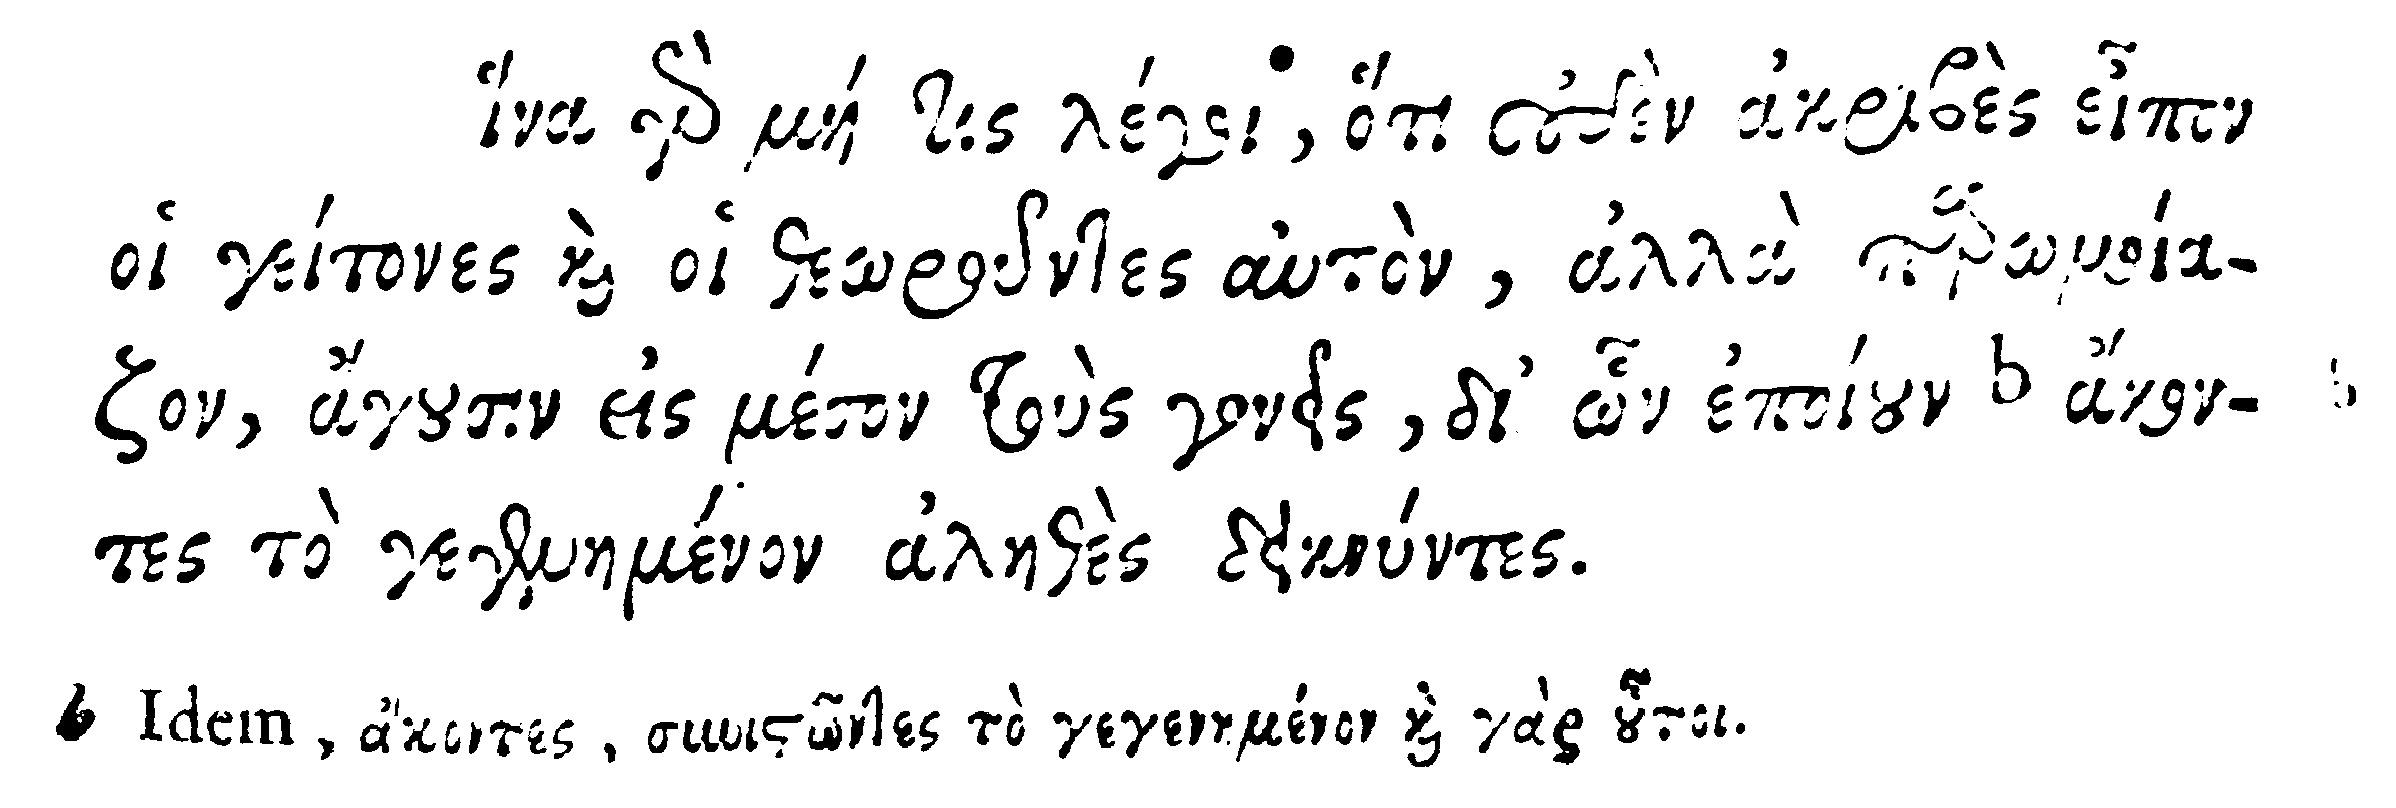 ἵνα γὰρ μή τις λέγοι, ὅτι οὐδὲν ἀκριβὲς εἶπον
οἱ γείτονες καὶ οἱ θεωροῦντες αὐτὸν, ἀλλὰ παρωμοία-
ζον, ἄγουσιν εἰς μέσον τοὺς γονεῖς, δι᾽ ὧν ἐποίουν b ἄκον-
τες τὸ γεγενημένον ἀληθὲς
b Idem, ἄκοντες, συνιστῶντες τὸ γεγενημένον καὶ γὰρ οὗτοι.